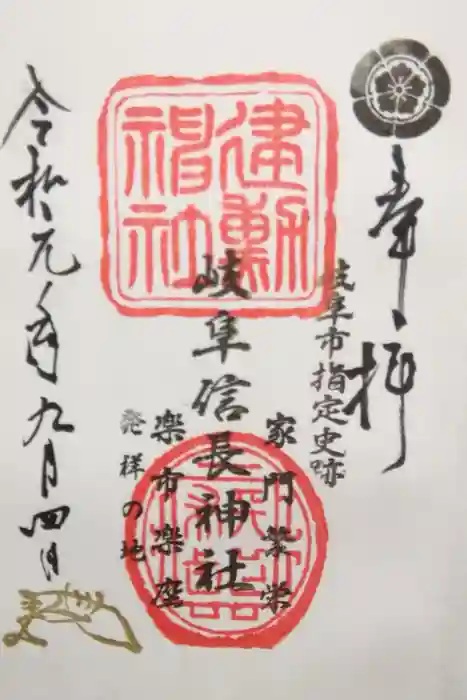 奉拝
岐阜市指定史跡
家門繁栄
建勲神社
岐阜信長神社
楽市楽座
発祥の地
令和元年九月四日